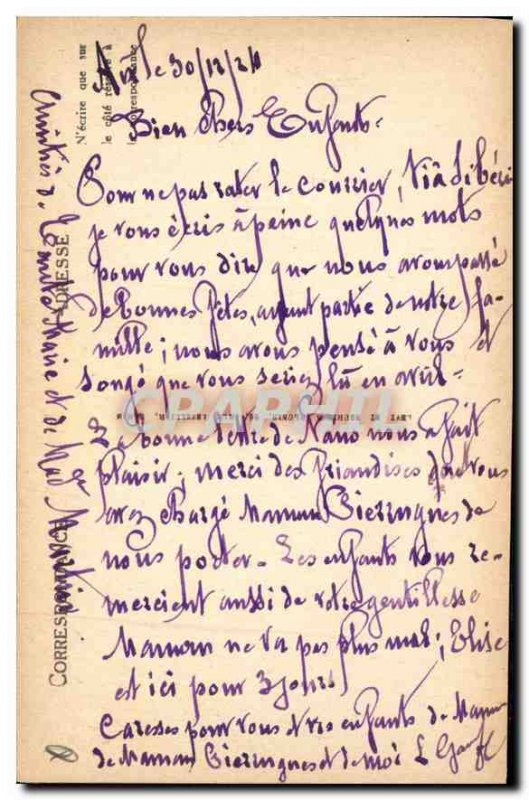 le 30/12/24
Bien Chers Enfants-
Pour ne pas rater le courrier, via Libéri
je vous écris à peine quelques mots
pour vous dire que nous avons passé
de bonnes fêtes, ayant partie de notre fa-
mille; nous avons pensé à vous et
songé que vous seriez là en avril-
La bonne lettre de Nano nous a fait
plaisir; merci des friandises que vous
avez chargé Maman de
nous porter. Les enfants vous re-
mercient aussi de votre gentillesse
Maman ne va pas plus mal; Elise
est ici pour 3 jours
Caresses pour vous et vos enfants de Maman
de Maman et de moi L
Amitiés de Marie et de
N'écrire que sur
le côté réservé à
la correspondance
ADRESSE
CORRESPONDANCE
CPAPHIL